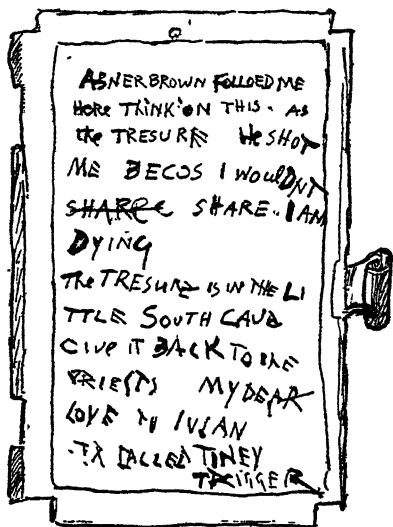 ABNER BROWN FOLLOED ME
HERE THINK'ON THIS. AS
the TRESURE HE SHOT
ME BECOS I WOULDNT
SHARE.. I AM
DYING
The TRESURE IS IN THE LI
TTLE SOUTH CAVE
GIVE IT BACK TO THE
PRIESTS MY DEAR
LOVE TO
CALLED
TRIGGER